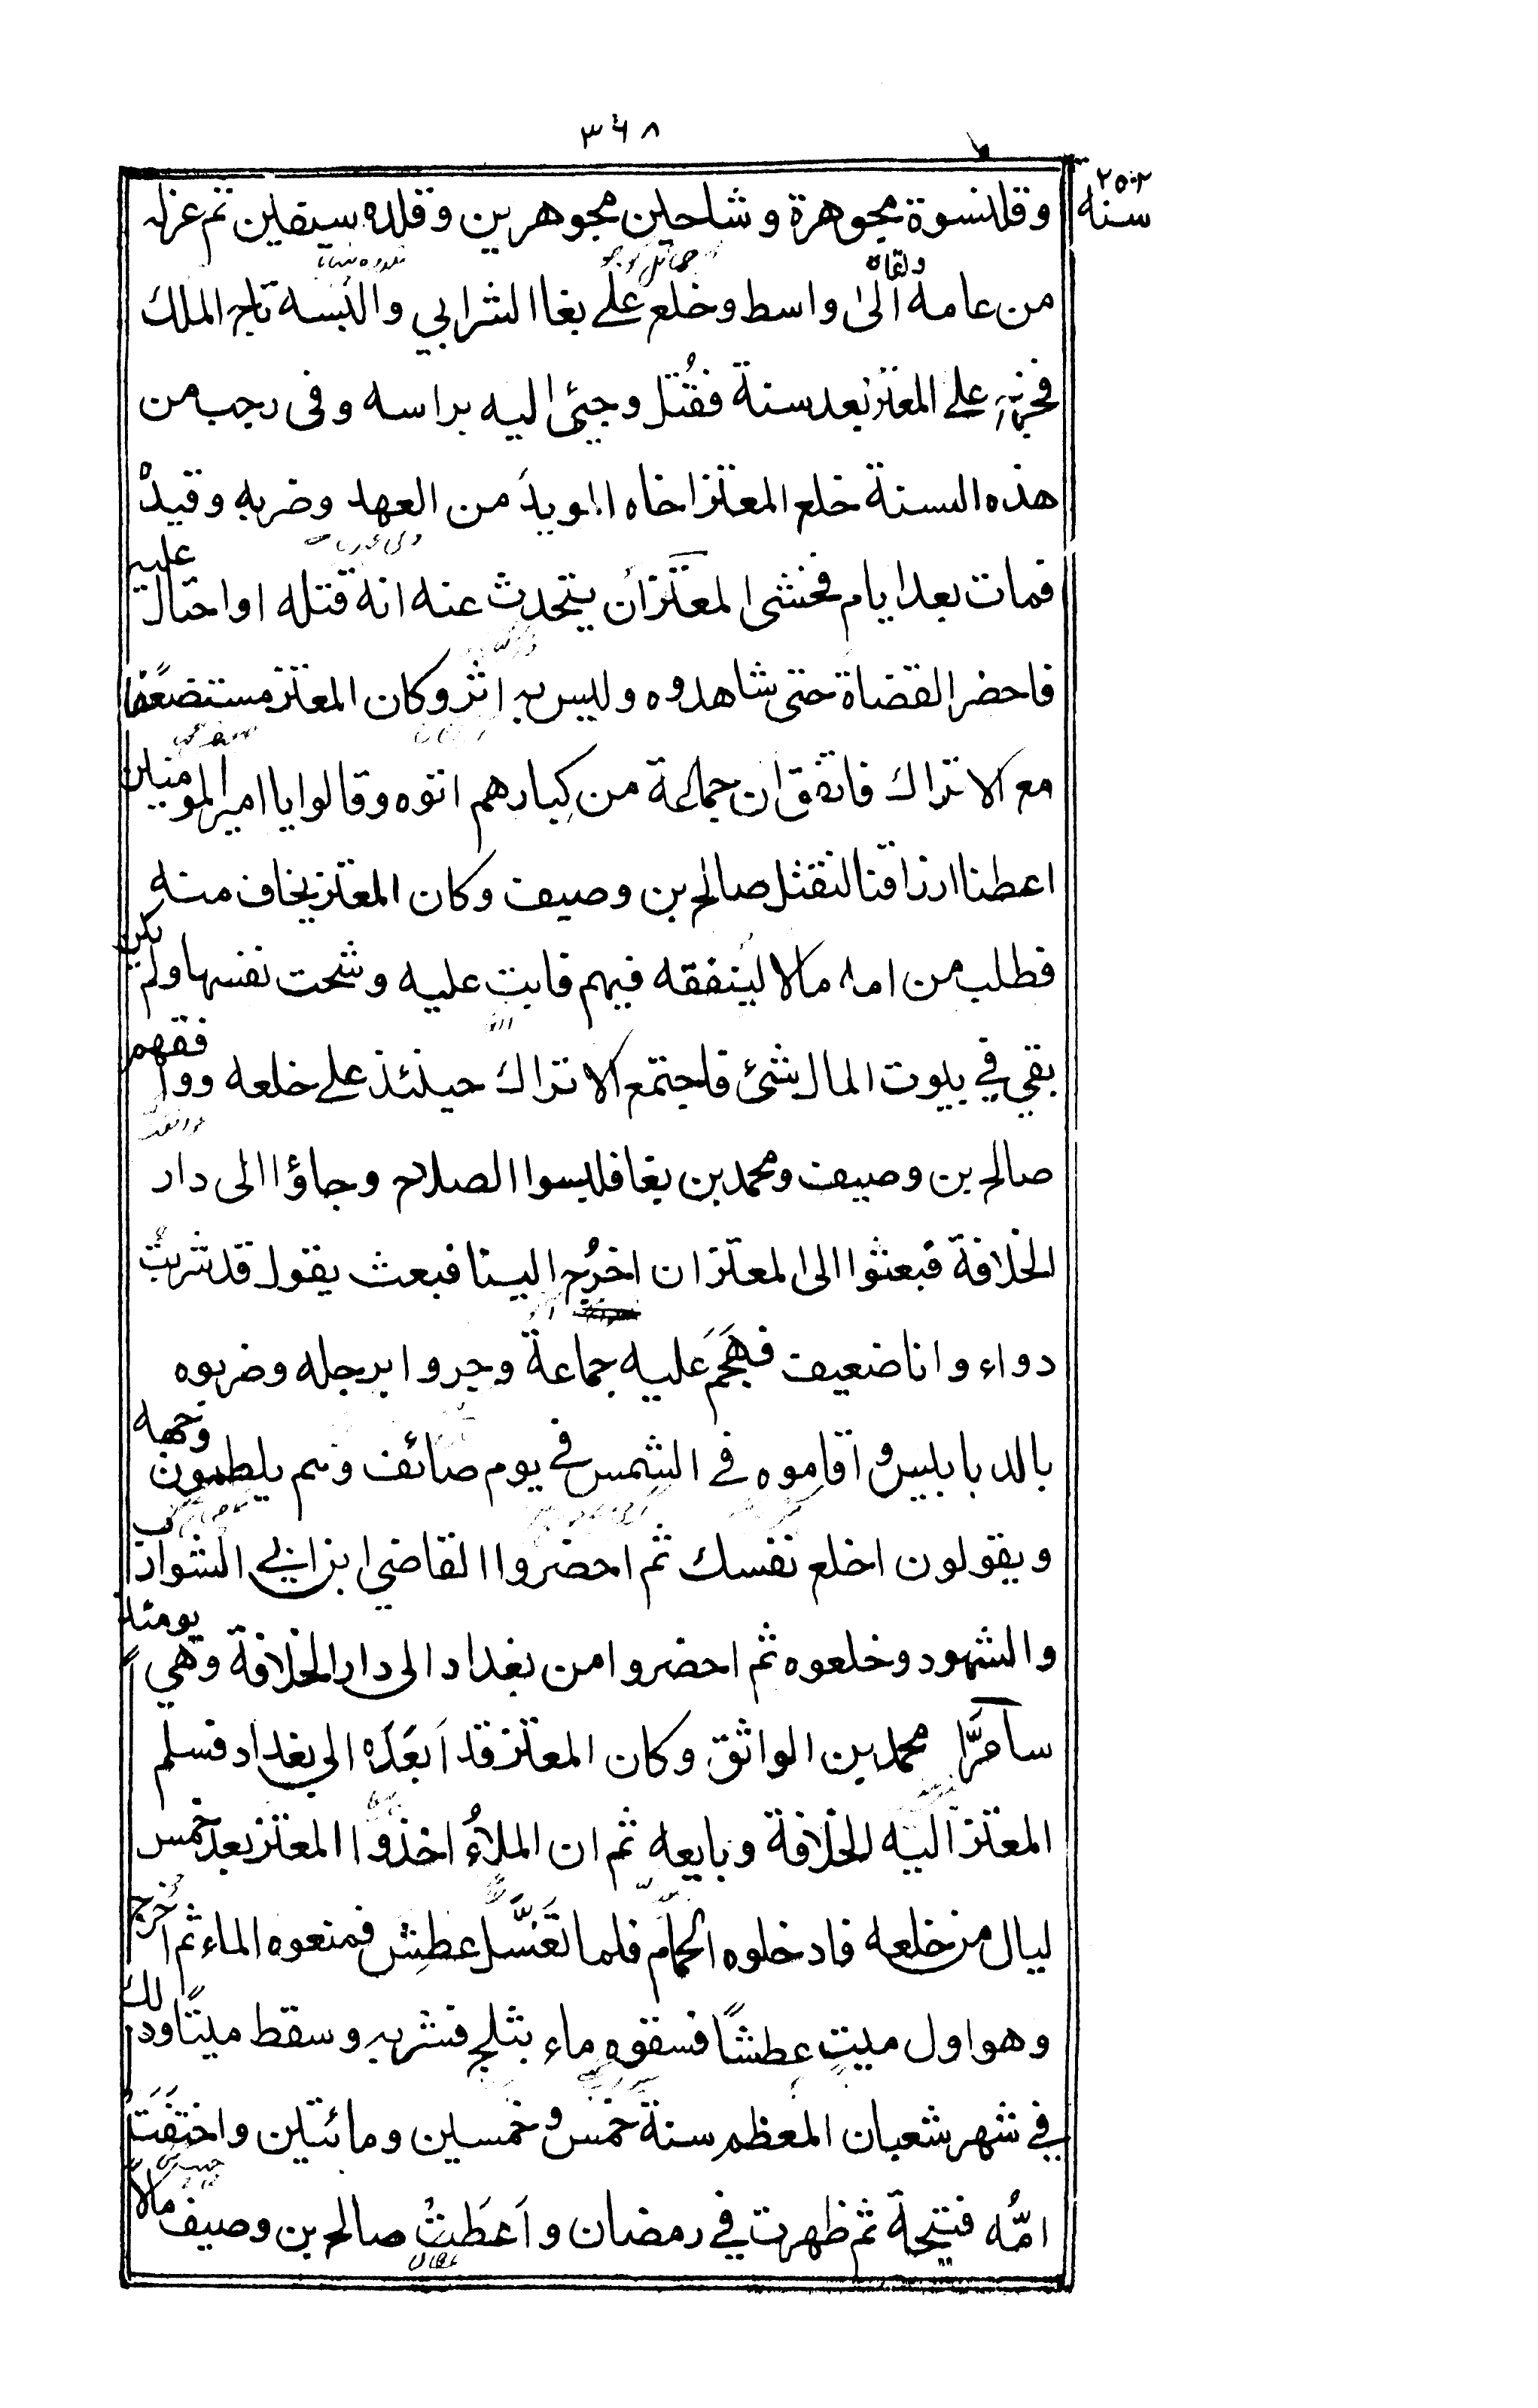 ٣٤٨
سنه ٢٥٢
وقلنسوة مجوهرة وشاحين مجوهرين وقلده سيفين ثم عزله
من عامه الى واسط وخلع على بغا الشرابي والبسه تاج الملك
فخرج على المعتز بعد سنة فقُتل وجيئ اليه براسه وفى رجب من
هذه السنة خلع المعتز اخاه المويد من العهد وضربه وقيده
فمات بعد ايام فخشى المعتز ان يتحدث عنه انه قتله او احتال عليه
فاحضر القضاة حتى شاهدوه وليس به اثر وكان المعتز مستضعفا
مع الاتراك فاتفق ان جماعة من كبارهم اتوه وقالوا يا امير المومنين
اعطنا ارزاقنا لنقتل صالح بن وصيف وكان المعتز يخاف منه
فطلب من امه مالا لينفقه فيهم فابت عليه وشحت نفسها ولم يكن
بقي في بيوت المال شئ فاجتمع الاتراك حينئذ على خلعه ووافقهم
صالح بن وصيف ومحمد بن بغا فلبسوا الصلاح وجاؤا الى دار
الخلافة فبعثوا الى المعتز ان اخرُج الينا فبعث يقول قد شربتُ
دواء وانا ضعيف فهَجَمَ عليه جماعة وجروا برجله وضربوه
بالدبابيس واقاموه في الشمس في يوم صائف وهم يلطمون وجهه
ويقولون اخلع نفسك ثم احضروا القاضي ابن ابي الشوارب
والشهود وخلعوه ثم احضروا من بغداد الى دار الخلافة وهي يومئذ
سامَرَّا محمد بن الواثق وكان المعتز قد اَبعَدَه الى بغداد فسلم
المعتز اليه الخلافة وبايعه ثم ان الملاءُ اخذوا المعتز بعد خمس
ليال من خلعه فادخلوه الحمام فلما تَغَسَّل عطِش فمنعوه الماء ثم اُخرج
وهو اول ميتٍ عطشًا فسقوه ماء بثلج فشربه وسقط ميتًا وذلك
في شهر شعبان المعظم سنة خمس وخمسين ومائتين واختفَت
امُّه قبيحة ثم ظهرت في رمضان واَعطَتْ صالح بن وصيف مالاً